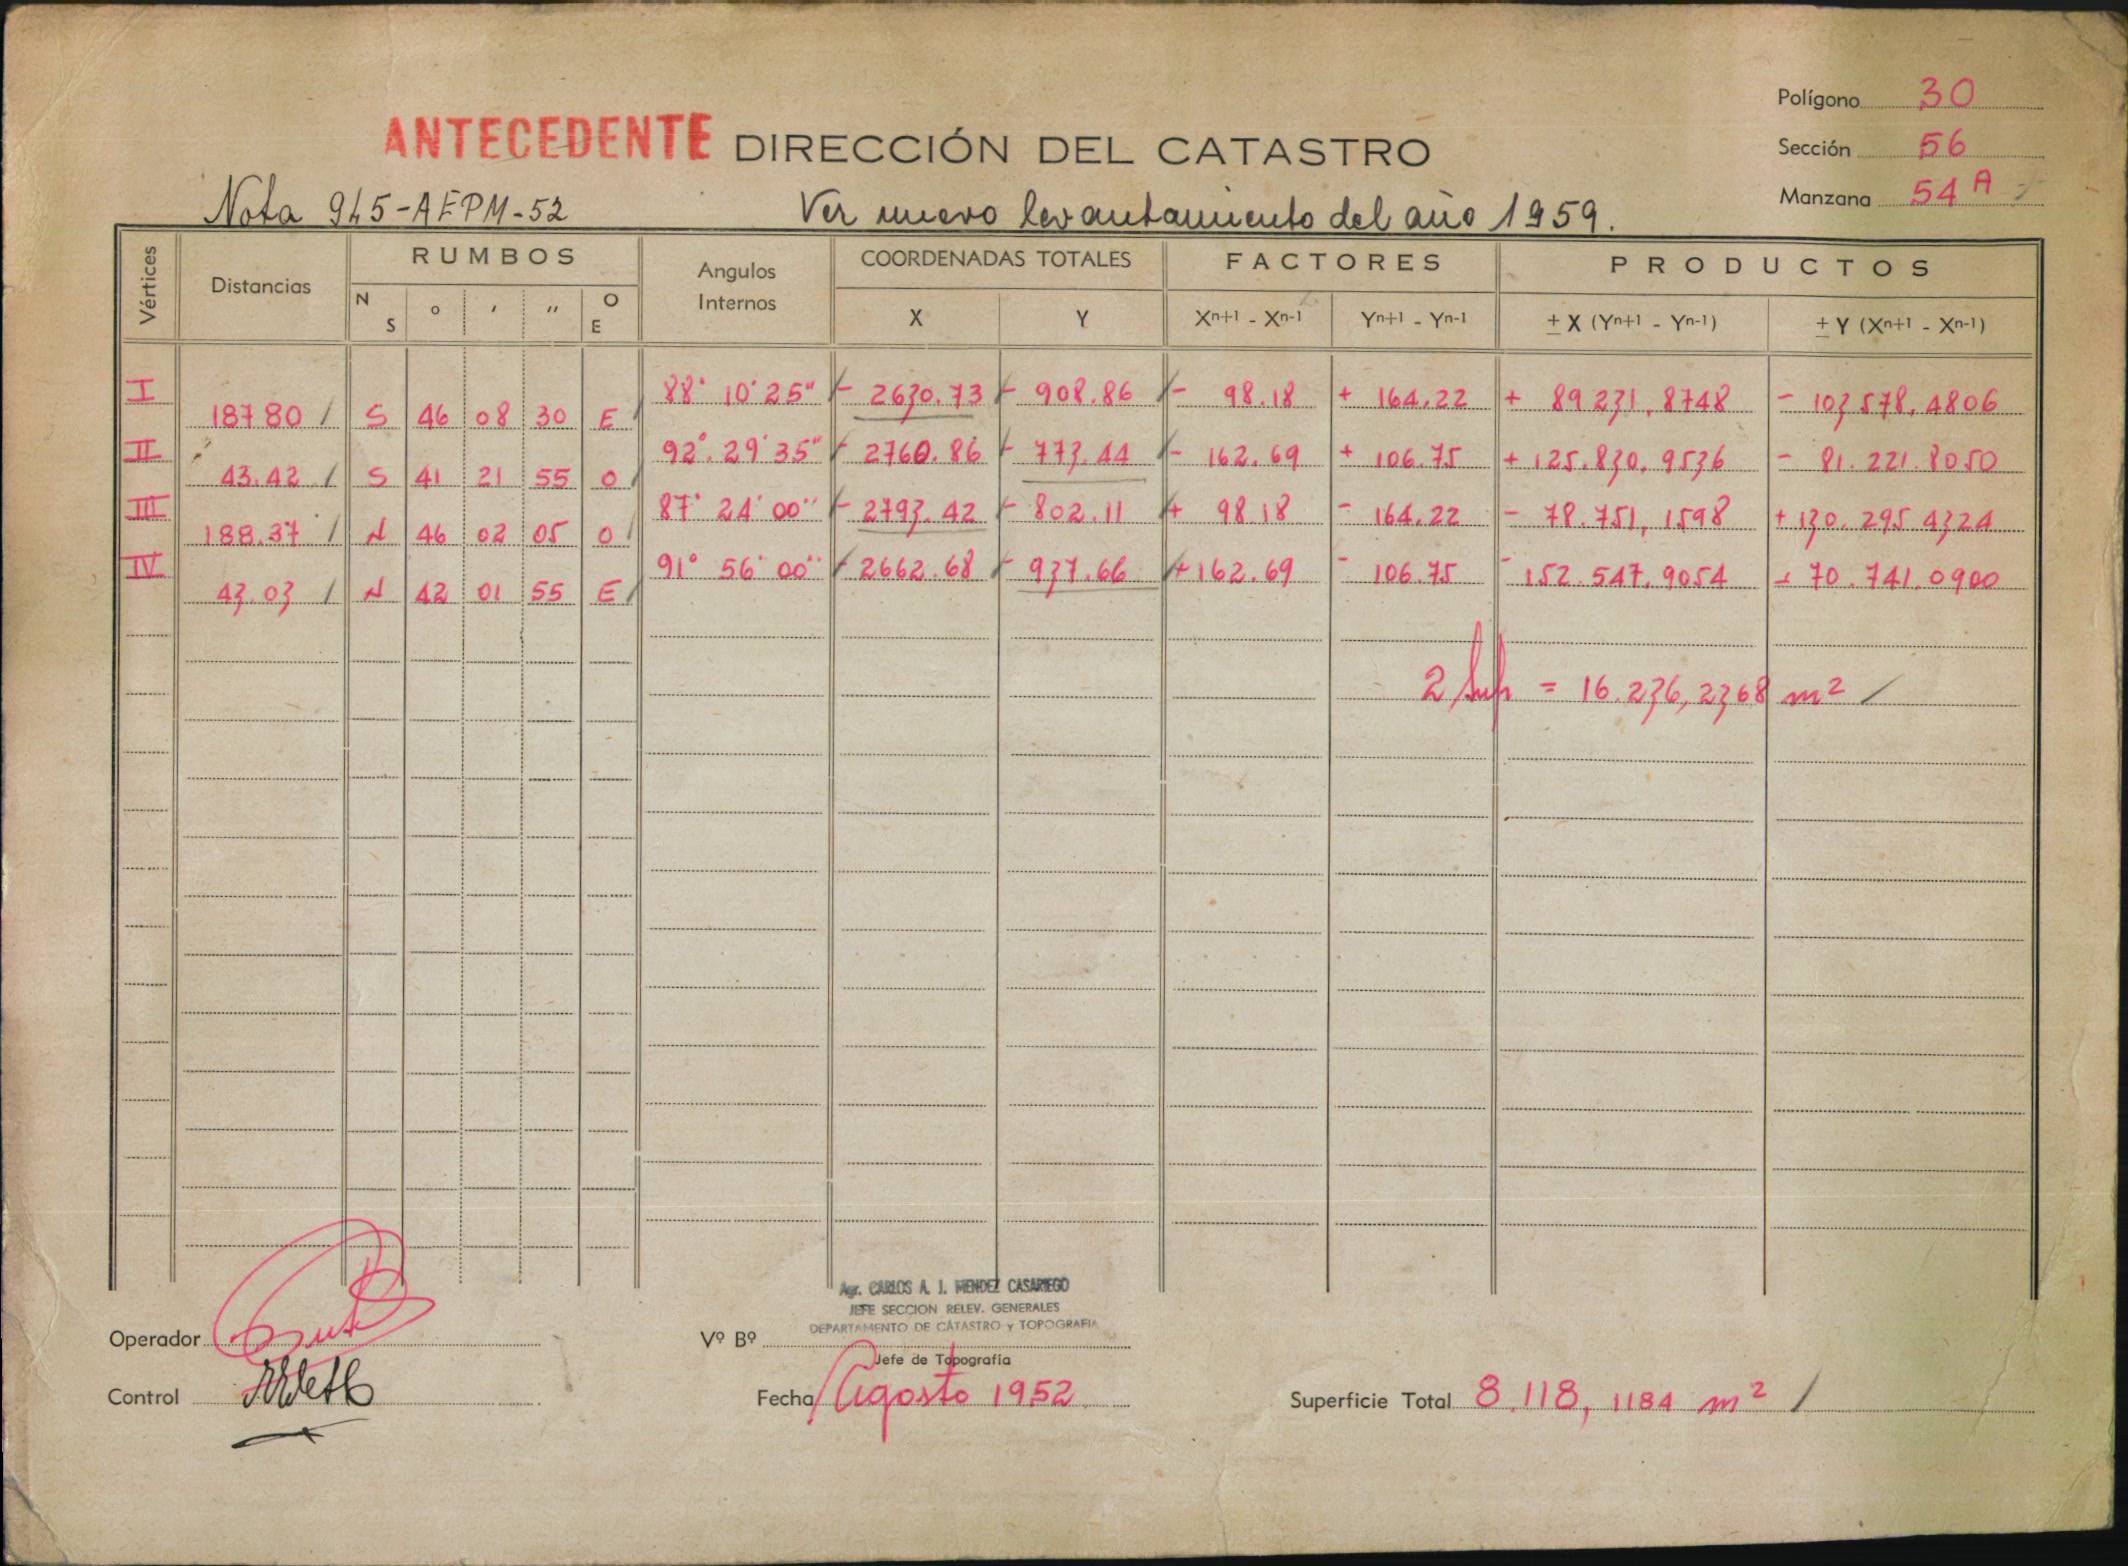 Polígono 30
ANTECEDENTE DIRECCIÓN DEL CATASTRO
Sección 56
Manzana 54 A
Nota 945-AEPM-52 Ver nuevo levantamiento del año 1959.
Vértices Distancias RUMBOS Angulos Internos COORDENADAS TOTALES FACTORES PRODUCTOS
N S ° ' " O E X Y Xn+1 - Xn-1 Yn+1 - Yn-1 ± X (Yn+1 - Yn-1) ± Y (Xn+1 - Xn-1)
I 88° 10' 25" - 2630.73 - 908.86 - 98.18 + 164.22 + 89231,8748 - 103578,4806
187.80 S 46 08 30 E
II 92° 29' 35" - 2760.86 - 773.44 - 162.69 + 106.75 + 125.830,9536 - 81.221.8050
43.42 S 41 21 55 O
III 87° 24' 00" - 2793.42 - 802.11 + 98.18 - 164.22 - 78.751,1598 + 130.295.4324
188.37 N 46 02 05 O
IV 91° 56' 00" - 2662.68 - 937.66 + 162.69 - 106.75 - 152.547,9054 + 70.741.0900
43.03 N 42 01 55 E
2 Sup = 16.236,2368 m²
Agr. CARLOS A. J. MENDEZ CASARIEGO
JEFE SECCION RELEV. GENERALES
DEPARTAMENTO DE CATASTRO y TOPOGRAFIA
Operador Vº Bº
Jefe de Topografía
Control Fecha Agosto 1952 Superficie Total 8.118,1184 m²